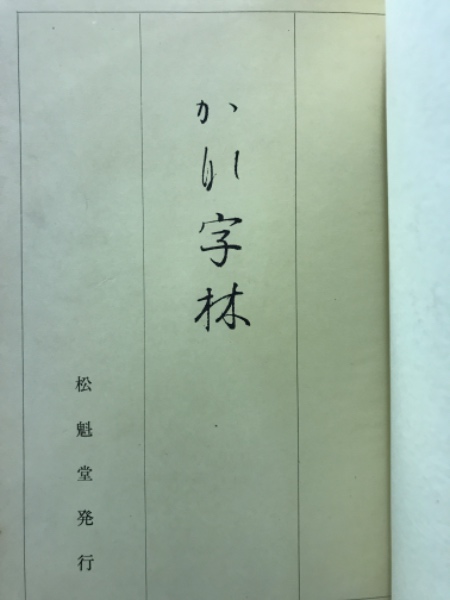 かな字林
松魁堂発行